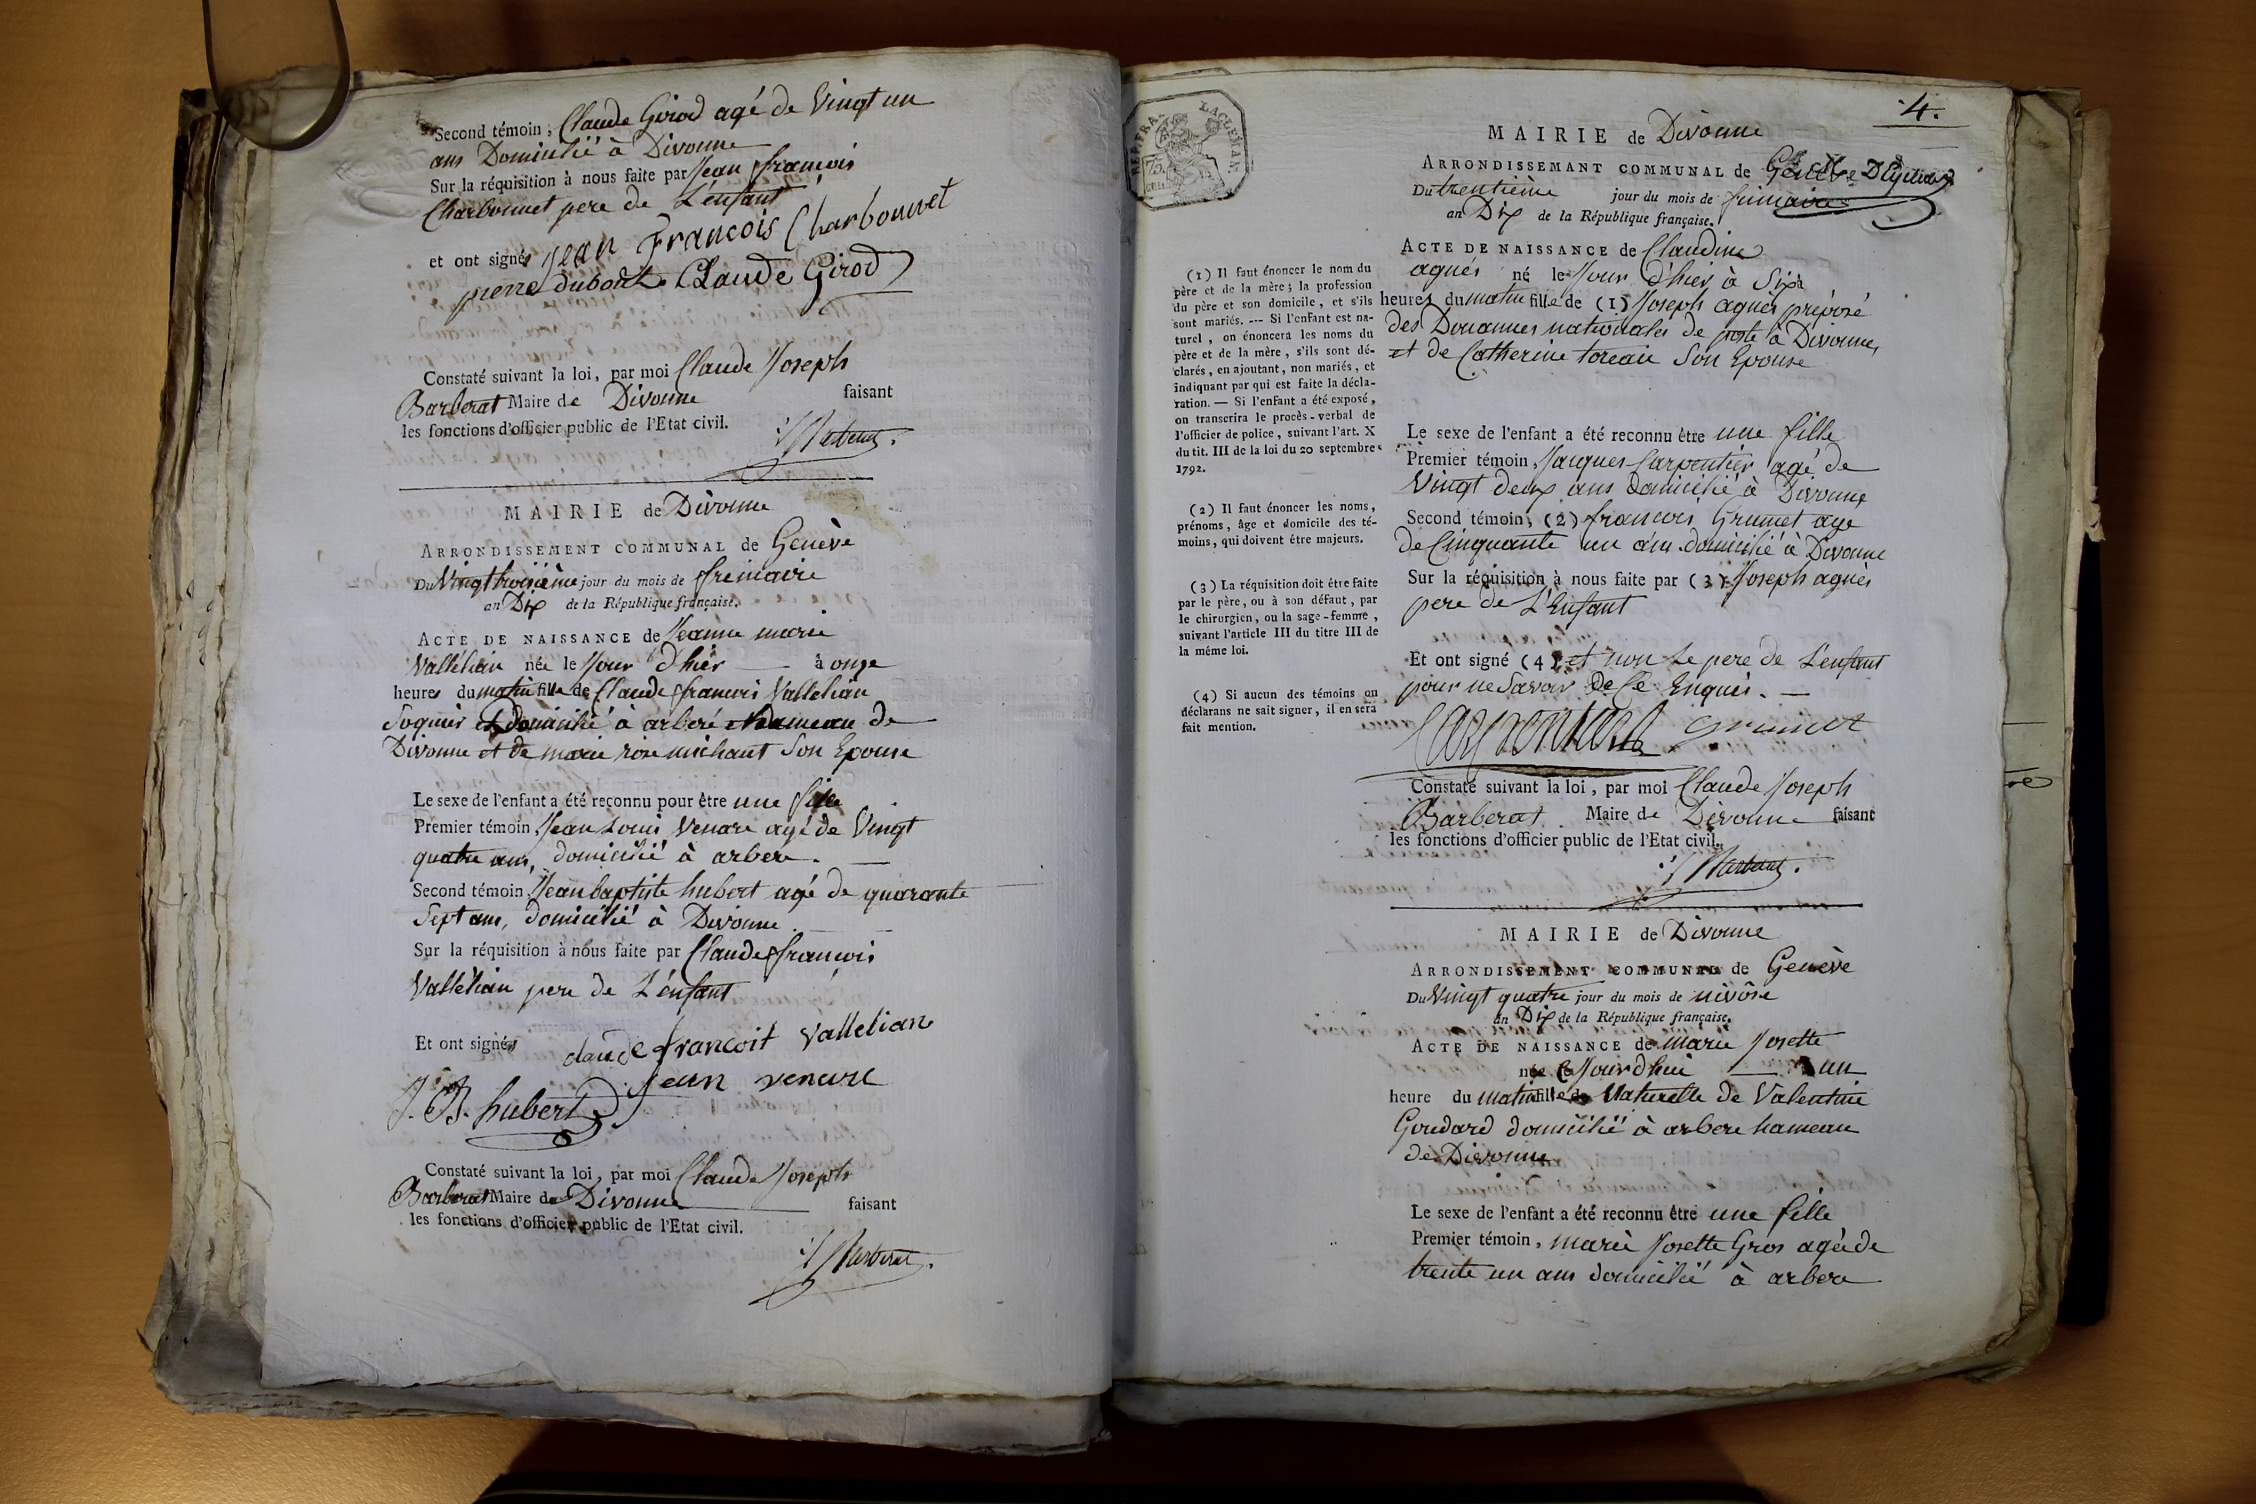 Second témoin, Claude Girod agé de Vingt un
ans Domicilié à Divonne
Sur la réquisition à nous faite par Jean françois
Charbonnet pere de L'énfant
et ont signés Jean François Charbonnet
pierre dubout Claude Girod
Constaté suivant la loi, par moi Claude Joseph
Barberat Maire de Divonne faisant
les fonctions d'officier public de l'Etat civil.
Barberat.
MAIRIE de Divonne
ARRONDISSEMENT COMMUNAL de Genève
Du Vingt troisième jour du mois de frimaire
an Dix de la République française.
ACTE DE NAISSANCE de Jeanne marie
Vallélian née le Jour d'hier à onze
heures du matin fille de Claude francois Vallelian
domicilié à arberé hameau de
Divonne et de marie rose michaut Son Epouse
Le sexe de l'enfant a été reconnu pour être une fille
Premier témoin, Jean Louis Venare agé de Vingt
quatre ans, domicilié à arbere.
Second témoin, Jean baptiste hubert agé de quarante
Sept ans, domicilié à Divonne
Sur la réquisition à nous faite par Claude françois
Vallélian pere de L'énfant
Et ont signés claude francoit vallelian
jean venare
J. B. hubert
Constaté suivant la loi, par moi Claude Joseph
Barberat Maire de Divonne faisant
les fonctions d'officier public de l'Etat civil.
Barberat.
4.
REP. FRA.
75
MAIRIE de Divonne
ARRONDISSEMANT COMMUNAL de Genève
Du trentième jour du mois de frimaire
an Dix de la République française.
ACTE DE NAISSANCE de Claudine
agnés né le Jour d'hier à Six
heures du matin fille de (1) Joseph agnès préposé
des Douannes nationales de poste à Divonne,
et de Catherine Son Epouse
(1) Il faut énoncer le nom du
père et de la mère; la profession
du père et son domicile, et s'ils
sont mariés. --- Si l'enfant est na-
turel, on énoncera les noms du
père et de la mère, s'ils sont dé-
clarés, en ajoutant, non mariés, et
indiquant par qui est faite la décla-
ration. — Si l'enfant a été exposé,
on transcrira le procès-verbal de
l'officier de police, suivant l'art. X
du tit. III de la loi du 20 septembre
1792.
(2) Il faut énoncer les noms,
prénoms, âge et domicile des té-
moins, qui doivent être majeurs.
(3) La réquisition doit être faite
par le père, ou à son défaut, par
le chirurgien, ou la sage-femme,
suivant l'article III du titre III de
la même loi.
(4) Si aucun des témoins ou
déclarans ne sait signer, il en sera
fait mention.
Le sexe de l'enfant a été reconnu être une fille
Premier témoin, Jacques Carpentier agé de
Vingt deux ans domicilié à Divonne
Second témoin, (2) francois Grumet age
de Cinquante un ans domicilié à Divonne
Sur la réquisition à nous faite par (3) Joseph agnès
pere de L'Enfant
Et ont signé (4) et non Le pere de L'enfant
pour ne Savoir De Ce Enquis.
Grumet
Constaté suivant la loi, par moi Claude Joseph
Barberat Maire de Divonne faisant
les fonctions d'officier public de l'Etat civil.
Barberat.
MAIRIE de Divonne
ARRONDISSEMENT COMMUNAL de Genève
Du Vingt quatre jour du mois de nivôse
an Dix de la République française.
ACTE DE NAISSANCE de marie Josette
née Ce Jourdhui à un
heure du matin fille Naturelle de Valentine
Goudard domicilié à arbere hameau
de Divonne
Le sexe de l'enfant a été reconnu être une fille
Premier témoin, marie Josette Gros agée de
trente un ans domicilié à arbere